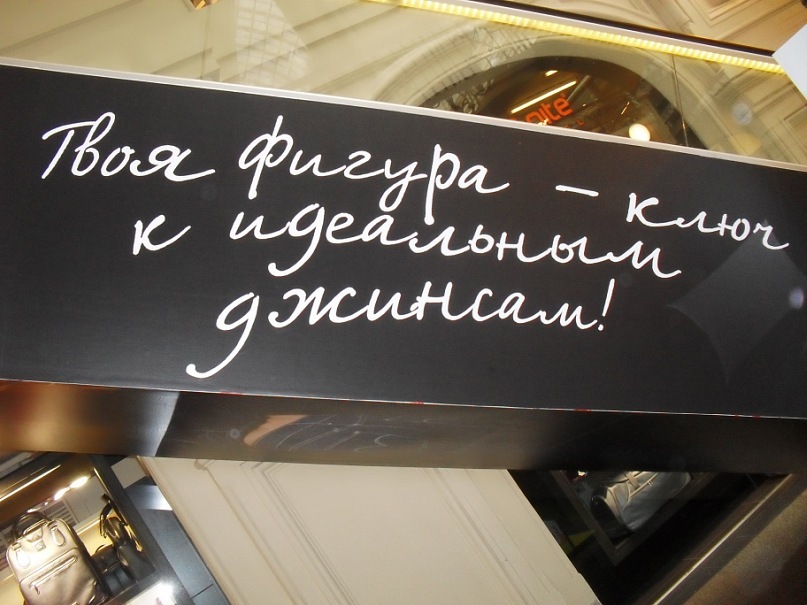 Твоя фигура – ключ
к идеальным
джинсам!